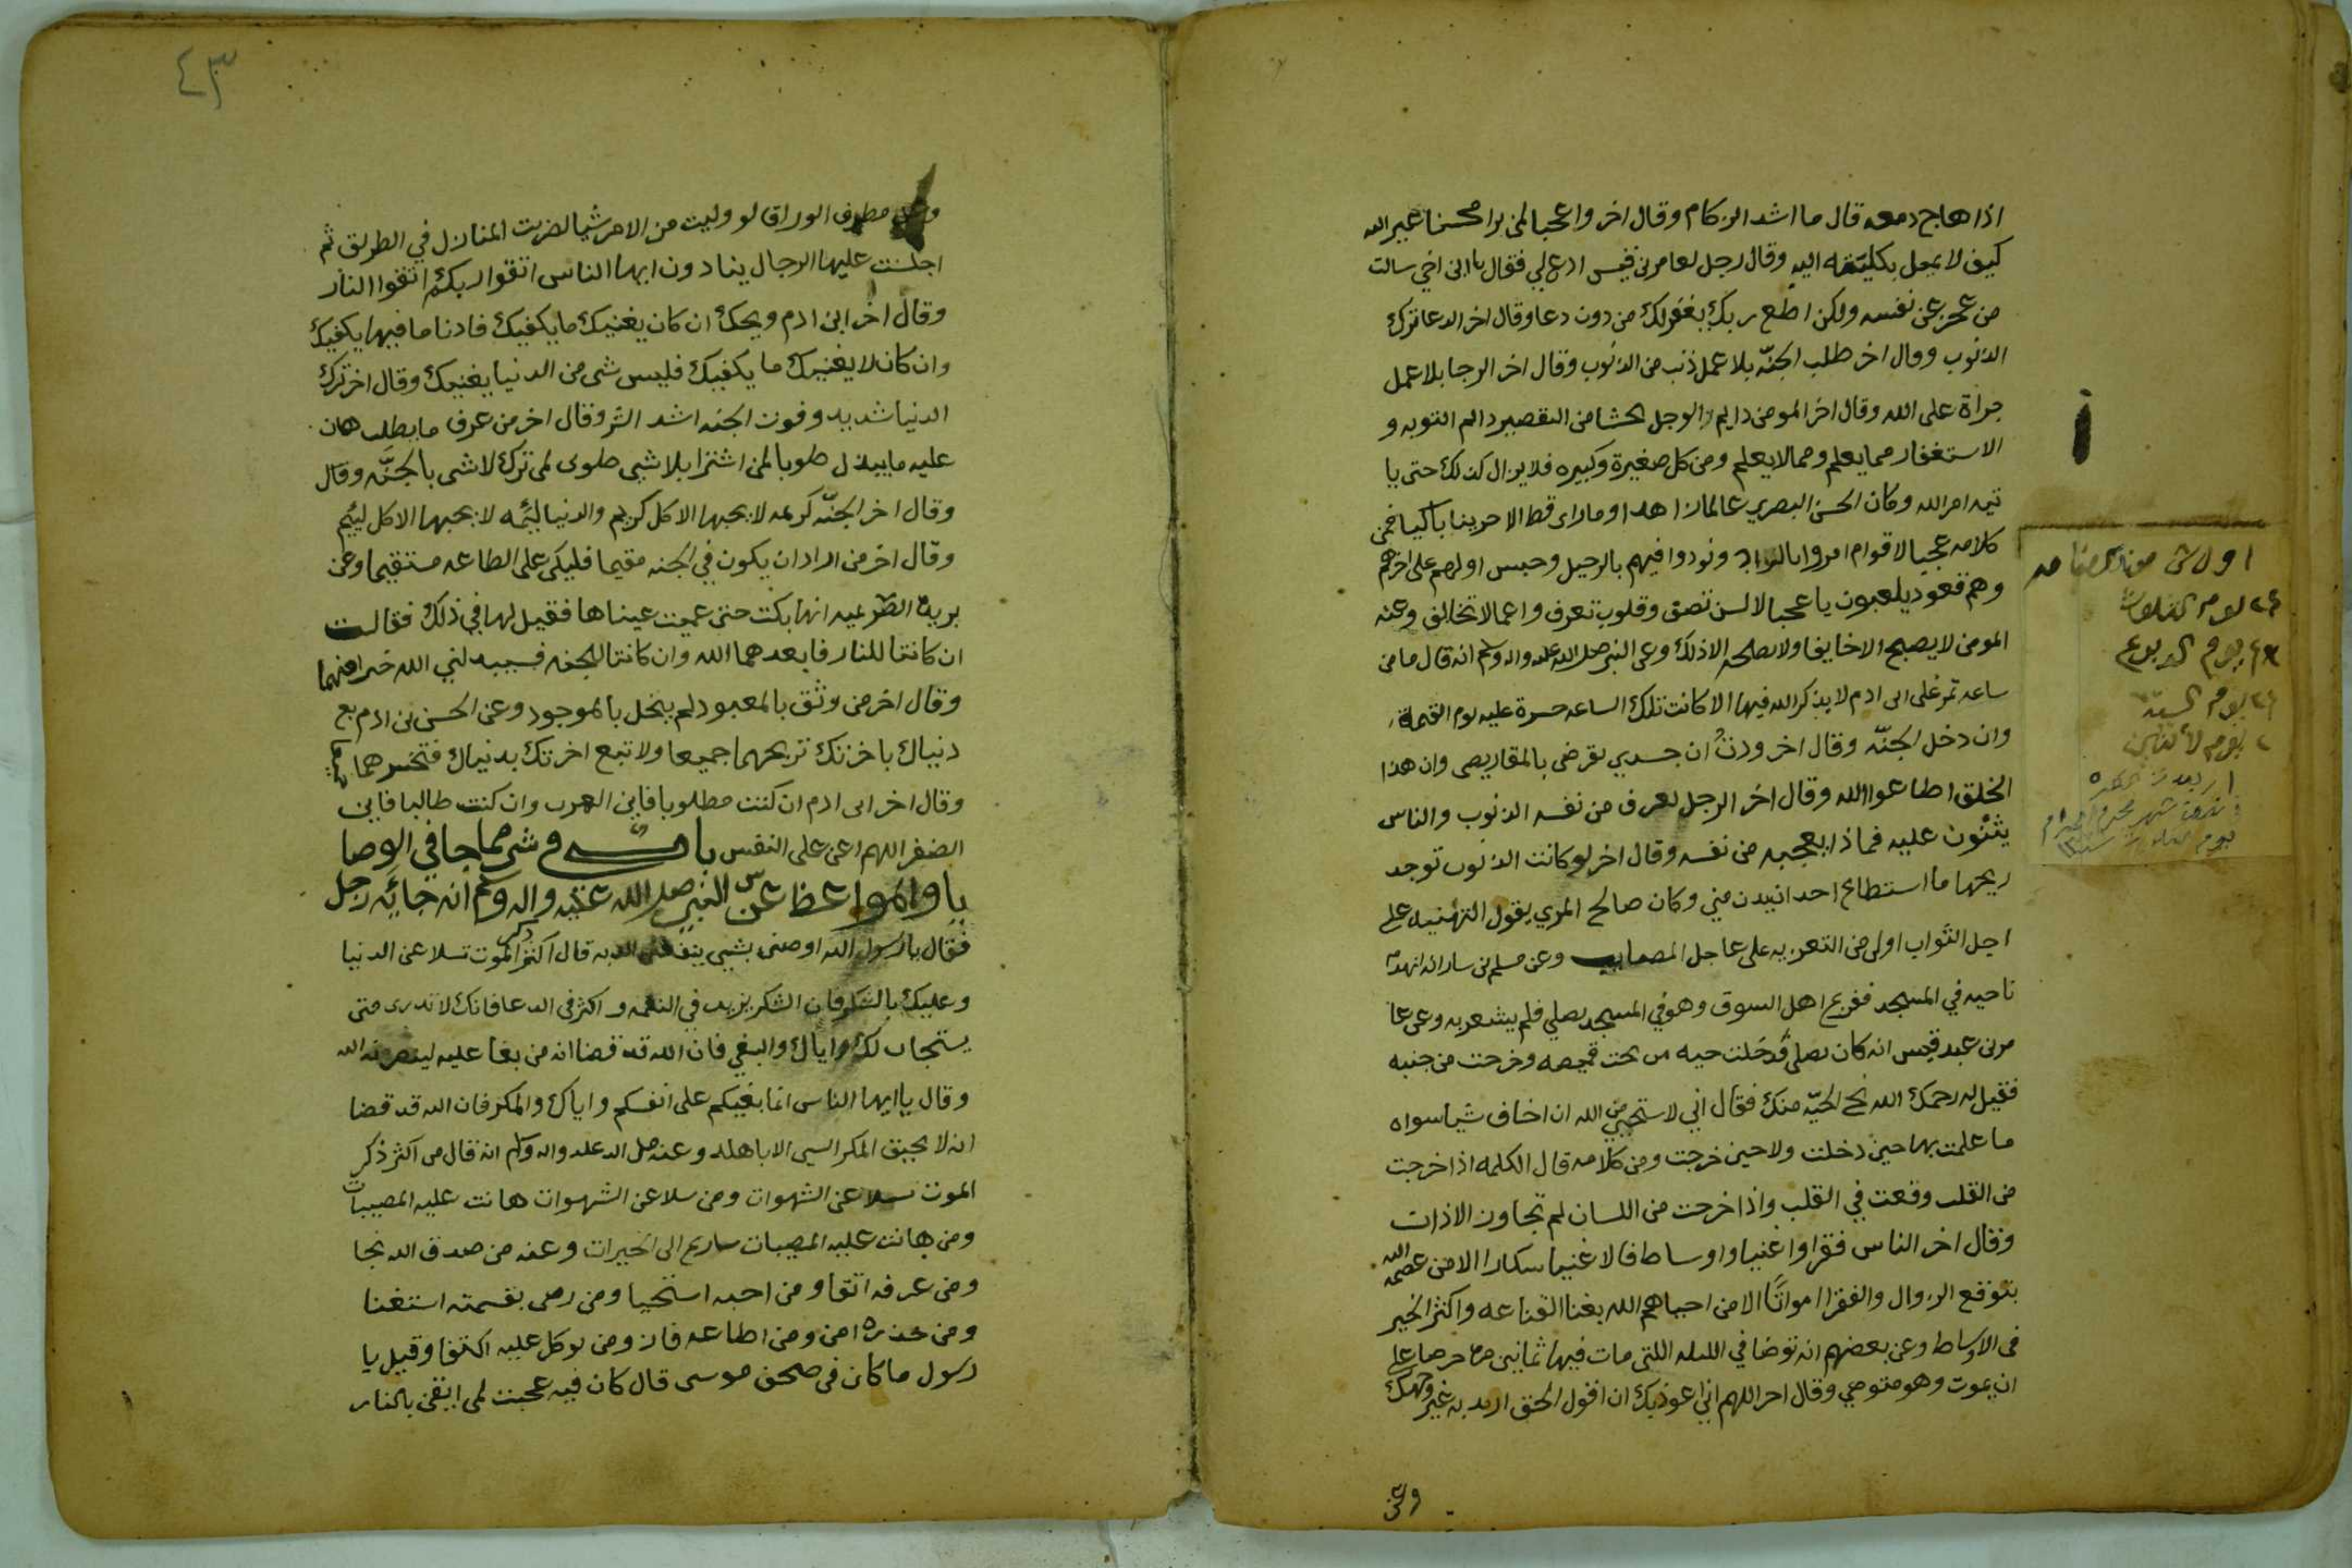 اذا هاج دمعه قال ما اشد الزكام وقال اخر واعجبا لمن يرا محسنا غير الله
كيف لا يميل بكليته اليه وقال رجل لعامر بن قيس ادع لي فقال يا ابن اخي سالت
من عجز عن نفسه ولكن اطع ربك يغفر لك من دون دعا وقال اخر الدعا ترك
الذنوب وقال اخر طلب الجنّه بلا عمل ذنب من الذنوب وقال اخر الرجا بلا عمل
جراة على الله وقال اخر المومن دايم الوجل يخشا من التقصير دايم التوبه و
الاستغفار مما يعلم ومما لا يعلم ومن كل صغيرة وكبيره فلا يزال كذلك حتى يا
تيه امر الله وكان الحسن البصري عالما زاهدا وما راى قط الا حزينا باكيا فمن
كلامه عجبا لاقوام امروا بالزاد ونودوا فيهم بالرحيل وحبس اولهم على اخرهم
وهم قعود يلعبون يا عجبا لالسن تصف وقلوب تعرف واعمالا تخالف وعنه
المومن لا يصبح الا خايفا ولا يصلحه الا ذلك وعن النبي صلى الله عليه واله وسلم انه قال ما من
ساعه تمر على ابن ادم لا يذكر الله فيها الا كانت تلك الساعه حسرة عليه يوم القيمة
وان دخل الجنّه وقال اخر وددت ان جسدي يقرض بالمقاريض وان هذا
الخلق اطاعوا الله وقال اخر الرجل يعرف من نفسه الذنوب والناس
يثنون عليه فماذا يعجبه من نفسه وقال اخر لو كانت الذنوب توجد
ريحها ما استطاع احد ان يدن مني وكان صالح المري يقول التهنيه على
اجل الثواب اولى من التعزيه على عاجل المصايب وعن مسلم بن يسار انه انهدت
ناحيه في المسجد ففزع اهل السوق وهو في المسجد يصلي فلم يشعر به وعن عا
مر بن عبد قيس انه كان يصلي قد دخلت حيه من تحت قميصه وخرجت من جنبه
فقيل له رحمك الله نح الحيّه منك فقال اني لاستحيي من الله ان اخاف شيا سواه
ما علمت بها حين دخلت ولا حين خرجت ومن كلامه قال الكلمه اذا خرجت
من القلب وقعت في القلب واذا خرجت من اللسان لم تجاوز الاذان
وقال اخر الناس فقرا واغنيا واوساط فالاغنيا سكارا الا من عصمه الله
بتوقع الزوال والفقرا امواتًا الا من احياهم الله بغنا القناعه واكثر الخير
في الاوساط وعن بعضهم انه توضا في الليله اللتي مات فيها ثمانين مره حرصا على
ان يموت وهو متوضي وقال اخر اللهم اني اعوذ بك ان اقول الحق اريد به غير وجهك
وعن
اول
يوم الثلوث
يوم الربوع
يوم السبت
يوم الاثنين
شهر محرم الحرام
٤٣
وعن مطرف الوراق لو وليت من الامر شيا لضربت المنازل في الطريق ثم
اجلست عليها الرجال ينادون ايها الناس اتقوا ربكم اتقوا النار
وقال اخر ابن ادم ويحك ان كان يغنيك ما يكفيك فادنا ما فيها يكفيك
وان كان لا يغنيك ما يكفيك فليس شي من الدنيا يغنيك وقال اخر ترك
الدنيا شديد وفوت الجنه اشد اثر وقال اخر من عرف ما يطلب هان
عليه ما يبذل طوبا لمن اشترا بلا شي طوبى لمن ترك لا شي بالجنَّه وقال
وقال اخر الجنّه كريمه لا يحبها الا كل كريم والدنيا لئيمه لا يحبها الا كل لييم
وقال اخر من اراد ان يكون في الجنه مقيما فليكن على الطاعه مستقيما وعن
بريه الضرعيه انها بكت حتى عميت عيناها فقيل لها في ذلك فقالت
ان كانتا للنار فابعدهما الله وان كانتا للجنه فسيبدلني الله خيرا منهما
وقال اخر من وثق بالمعبود لم يبخل بالموجود وعن الحسن بن ادم بع
دنياك باخرتك تربحهما جميعا ولا تبع اخرتك بدنياك فتخسرهما جميعا
وقال اخر ابن ادم ان كنت مطلوبا فاين الهرب وان كنت طالبا فاين
الضفر اللهم اعن على النفس باب في شي مما جا في الوصا
يا والمواعظ عن النبي صلى الله عليه واله وسلم انه جايه رجل
فقال يا رسول الله اوصني بشي ينفعني الله به قال اكثر ذكر الموت تسلا عن الدنيا
وعليك بالشكر فان الشكر يزيد في النعمه واكثر في الدعا فانك لا تدرى متى
يستجاب لك واياك والبغي فان الله قد قضا انه من بغا عليه لينصرنه الله
وقال يا ايها الناس انما بغيكم على انفسكم واياك والمكر فان الله قد قضا
انه لا يحيق المكر السيى الا باهله وعنه صلى الله عليه واله وسلم انه قال من اكثر ذكر
الموت سلا عن الشهوات ومن سلا عن الشهوات هانت عليه المصيبات
ومن هانت عليه المصيبات سارع الى الخيرات وعنه من صدق الله نجا
ومن عرفه اتقا ومن احبه استحيا ومن رضي بقسمته استغنا
ومن حذره امن ومن اطاعه فاز ومن توكل عليه اكتفا وقيل يا
رسول ما كان في صحف موسى قال كان فيه عجبت لمن ايقن بالنار